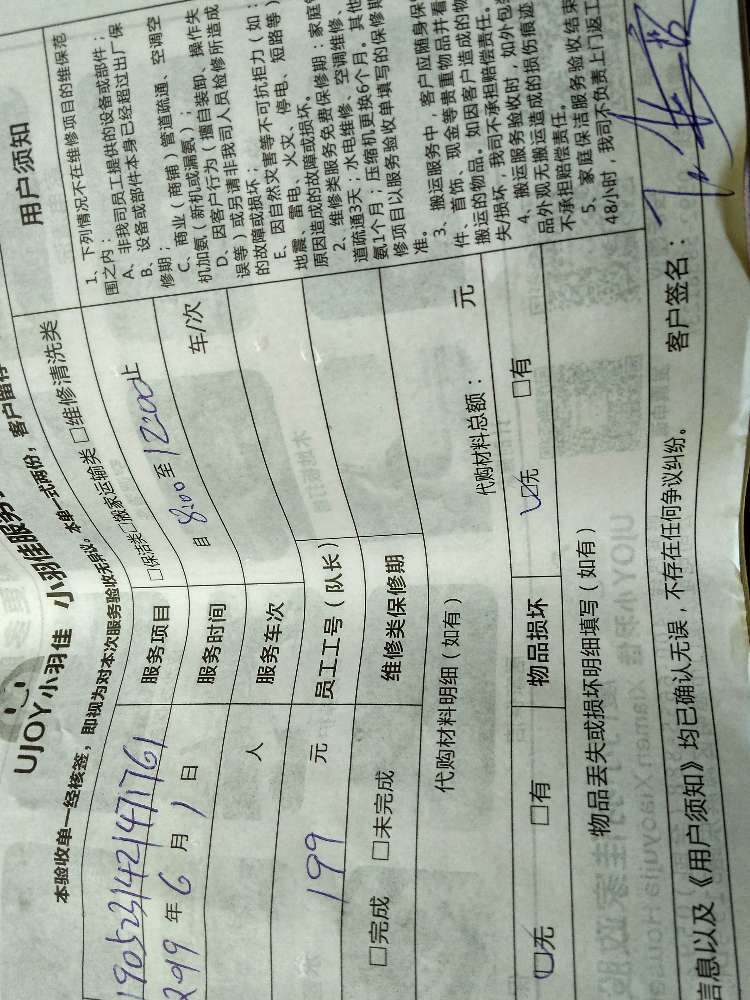 UJOY小羽佳 小羽佳服务
本验收单一经核签，即视为对本次服务验收无异议。 本单一式两份，客户留存
190523142147 1761
服务项目
□保洁类□搬家运输类 □维修清洗类
299年6月1日
服务时间
自8:00至12:00止
人
服务车次
车/次
199元
员工工号（队长）
□完成 □未完成
维修类保修期
代购材料明细（如有）
代购材料总额： 元
□无 □有
物品损坏
□无 □有
物品丢失或损坏明细填写（如有）
信息以及《用户须知》均已确认无误，不存在任何争议纠纷。
客户签名：
用户须知
1、下列情况不在维修项目的维保范
围之内：
A、非我司员工提供的设备或部件；
B、设备或部件本身已经超过出厂保
修期；
C、商业（商铺）管道疏通、空调空
机加氨（新机或漏氨）；
D、因客户行为（擅自装卸、操作失
误等）或另请非我司人员检修所造成
的故障或损坏；
E、因自然灾害等不可抗拒力（如：
地震、雷电、火灾、停电、短路等）
原因造成的故障或损坏。
2、维修类服务免费保修期：家庭
道疏通3天；水电维修、空调维修、
氨1个月；压缩机更换6个月。其他
修项目以服务验收单填写的保修期
准。
3、搬运服务中，客户应随身保
件、首饰、现金等贵重物品并看
搬运的物品。如因客户造成的物
失/损坏，我司不承担赔偿责任。
4、搬运服务验收时，如外包装
品外观无搬运造成的损伤痕迹
不承担赔偿责任。
5、家庭保洁服务验收结束
48小时，我司不负责上门返工